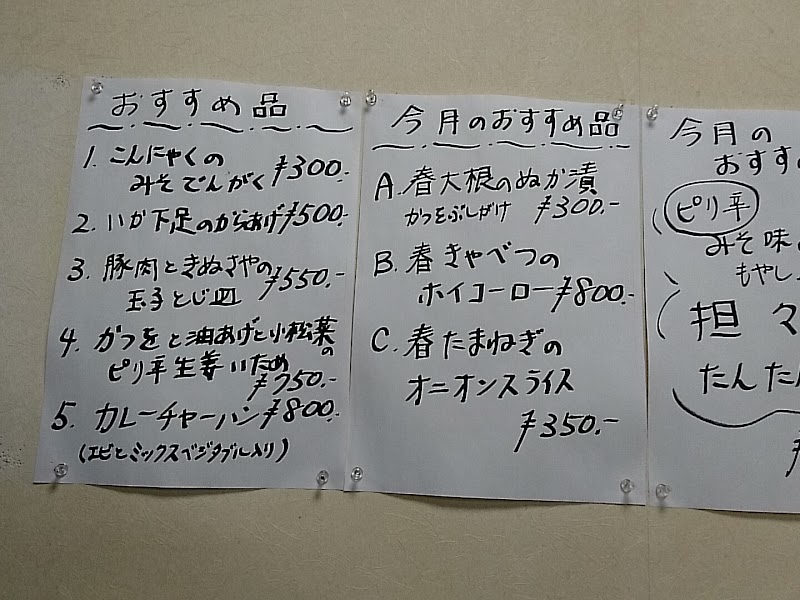 おすすめ品
1. こんにゃくの
みそでんがく ¥300.-
2. いか下足のからあげ ¥500.-
3. 豚肉ときぬさやの
玉子とじ皿 ¥550.-
4. かつをと油あげと小松菜の
ピリ辛生姜いため
¥750.-
5. カレーチャーハン ¥800.-
(エビとミックスベジタブル入り)
今月のおすすめ品
A. 春大根のぬか漬
かつをぶしがけ ¥300.-
B. 春きゃべつの
ホイコーロー ¥800.-
C. 春たまねぎの
オニオンスライス
¥350.-
今月の
おすす
ピリ辛
みそ味
もやし
担々
たんた